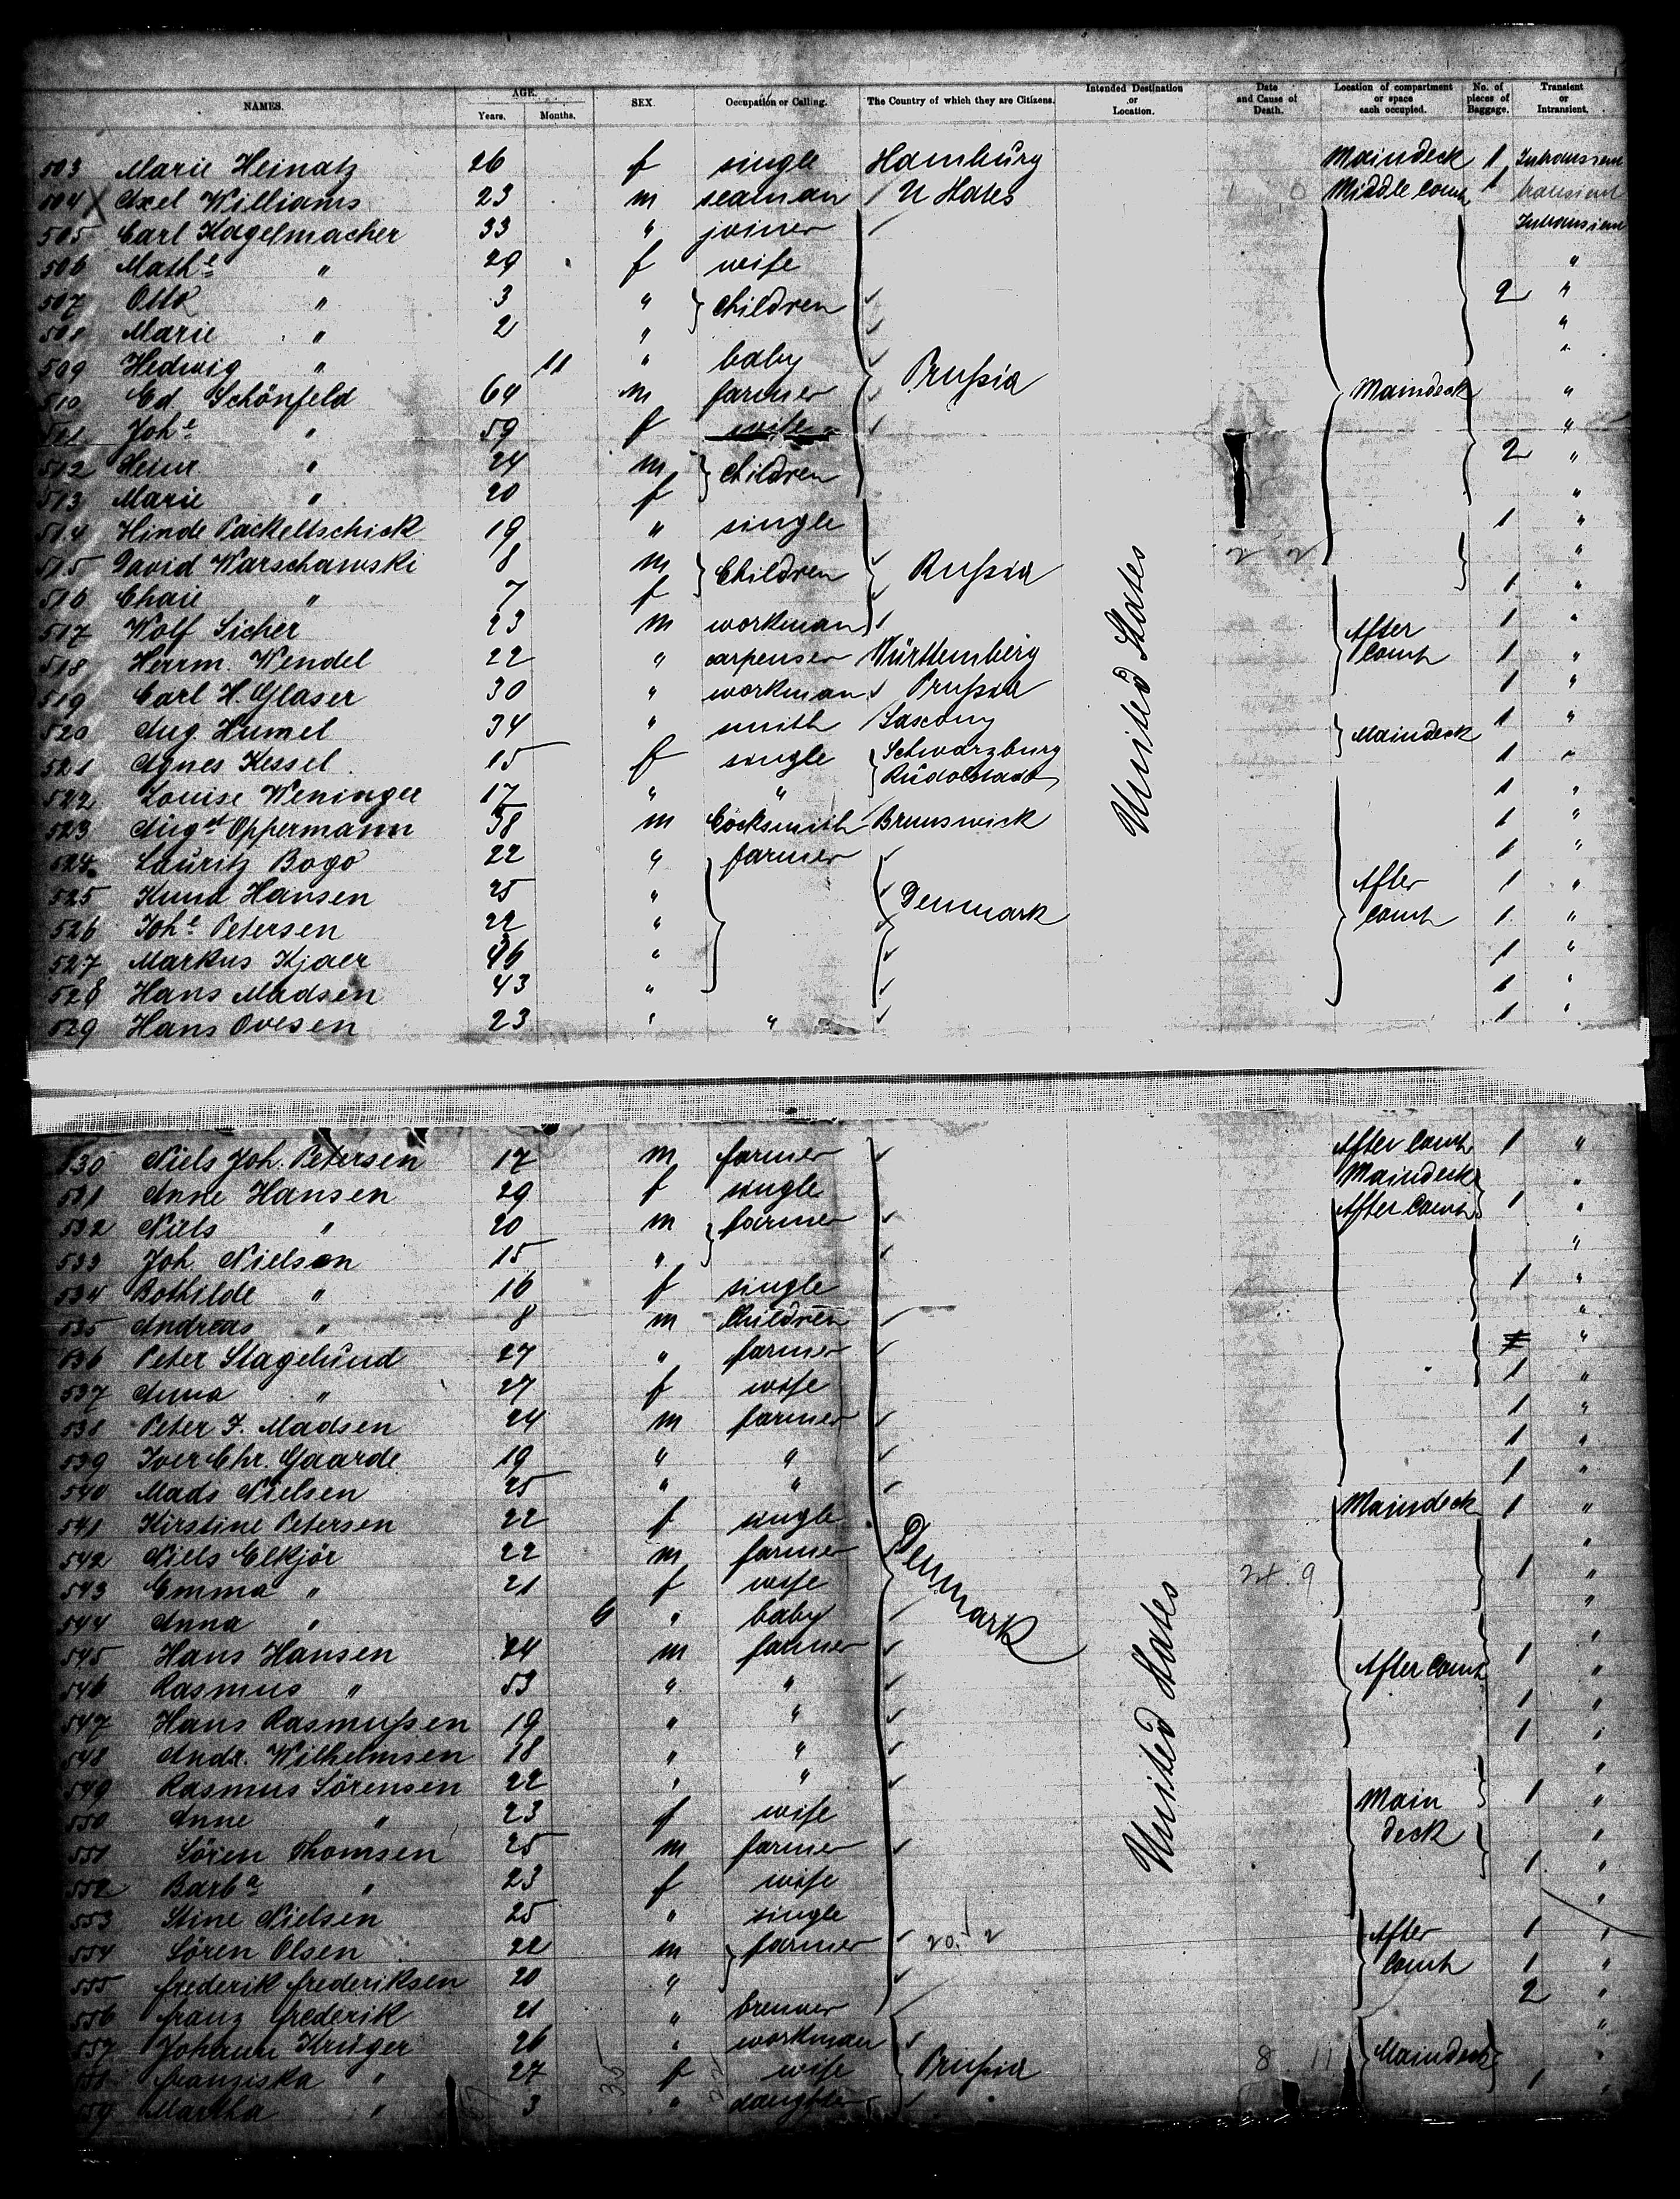 NAMES. AGE. Years. Months. SEX. Occupation or Calling. The Country of which they are Citizens. Intended Destination or Location. Date and Cause of Death. Location of compartment or space each occupied. No. of pieces of Baggage. Transient or Intransient.
503 Marie Heinatz 26 f single Hamburg Maindeck 1 Intransient
504 X Axel Williams 23 m seaman U States Middle Comt 1 transient
505 Carl Kagelmacher 33 " joiner Intransient
506 Mathe " 29 f wife "
507 Otto " 3 " children 2 "
508 Marie " 2 " "
509 Hedwig " 11 " baby Prußia "
510 Ed Schönfeld 64 m farmer Maindeck "
511 Johe " 59 f wife "
512 Heinr " 24 m children 2 "
513 Marie " 20 f "
514 Hinde Packeltschick 19 " single 1 "
515 David Warschawski 8 m Children Rußia "
516 Chaie " 7 f 1 "
517 Wolf Sicher 23 m workman After Comt 1 "
518 Herrm. Wendel 22 " carpenter Württemberg 1 "
519 Carl H. Glaser 30 " workman Prußia 1 "
520 Aug Humel 34 " smith Saxony Maindeck 1 "
521 Agnes Kessel 15 f single Schwarzburg Rudolstadt 1 "
522 Louise Weninger 17 " " 1 "
523 Augst Oppermann 38 m Locksmith Brunswick 1 "
524 Lauritz Bogo 22 " farmer 1 "
525 Knud Hansen 25 " Denmark After Comt 1 "
526 Johe Petersen 22 " 1 "
527 Markus Kjaer 46 " 1 "
528 Hans Madsen 43 " 1 "
529 Hans Ovesen 23 " " 1 "
United States
530 Niels Joh. Petersen 17 m farmer After Comt 1 "
531 Anne Hansen 29 f single Maindeck "
532 Niels " 20 m farmer After Comt 1 "
533 Joh. Nielsen 15 " "
534 Bothilde " 16 f single 1 "
535 Andreas " 8 m Children "
536 Peter Stagelund 27 " farmer "
537 Anna " 27 f wife 1 "
538 Peter F. Madsen 24 m farmer 1 "
539 Iver Chr. Gaarde 19 " " 1 "
540 Mads Nielsen 25 " " 1 "
541 Kirstine Petersen 22 f single Maindeck 1 "
542 Niels Elkjör 22 m farmer Denmark "
543 Emma " 21 f wife 24. 9 1 "
544 Anna " 6 " baby "
545 Hans Hansen 24 m farmer After Comt 1 "
546 Rasmus " 53 " " "
547 Hans Rasmußen 19 " " 1 "
548 Andr. Wilhelmsen 18 " " 1 "
549 Rasmus Sörensen 22 " " "
550 Anne " 23 f wife Main deck 1 "
551 Sören Thomsen 25 m farmer "
552 Barba " 23 f wife 1 "
553 Stine Nielsen 25 " single "
554 Sören Olsen 22 m farmer After Comt 1 "
555 Frederik Frederiksen 20 " 1 "
556 Franz Frederik 21 " brenner 2 "
557 Johann Krüger 26 " workman "
558 Franziska " 27 f wife Prußia 8 11 Maindeck "
559 Martha " 3 " daughter 1 "
United States